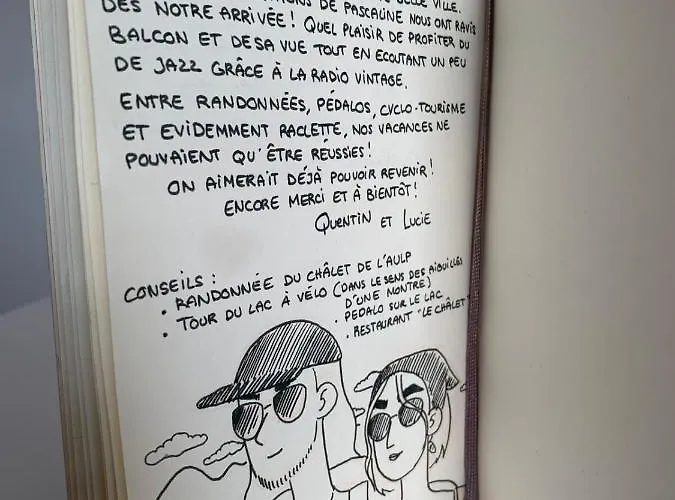 DE PASCALINE NOUS ONT RAVIS
DÈS NOTRE ARRIVÉE! QUEL PLAISIR DE PROFITER DU
BALCON ET DE SA VUE TOUT EN ECOUTANT UN PEU
DE JAZZ GRÂCE À LA RADIO VINTAGE.
ENTRE RANDONNÉES, PÉDALOS, CYCLO-TOURISME
ET EVIDEMMENT RACLETTE, NOS VACANCES NE
POUVAIENT QU'ÊTRE RÉUSSIES!
ON AIMERAIT DÉJÀ POUVOIR REVENIR!
ENCORE MERCI ET À BIENTÔT!
QUENTIN ET LUCIE
CONSEILS :
• RANDONNÉE DU CHÂLET DE L'AULP
• TOUR DU LAC À VÉLO (DANS LE SENS DES AIGUILLES
D'UNE MONTRE)
• PEDALO SUR LE LAC
• RESTAURANT "LE CHÂLET"